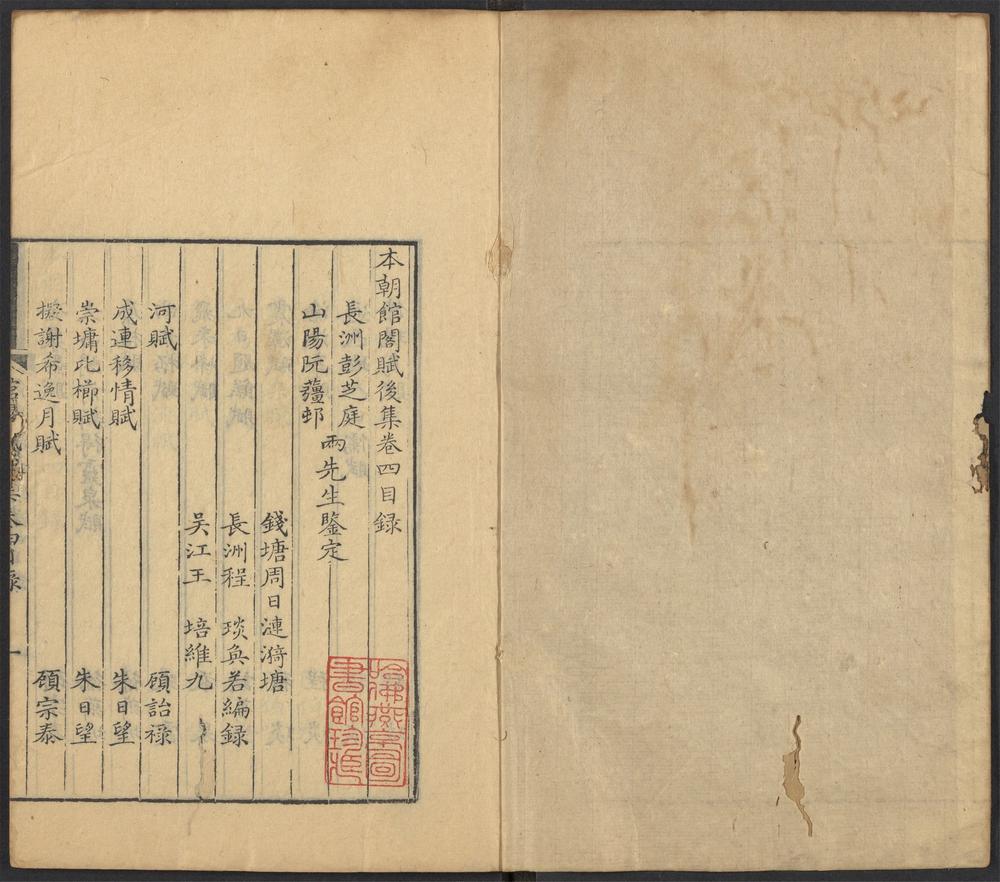 本朝館閣賦後集卷四目録
長洲彭芝庭
山陽阮蘁邨
兩先生鑒定
錢塘周日漣漪塘
長洲程　琰奐若編録
吴江王　培維九
河賦　顧詒祿
成連移情賦　朱日望
崇墉比櫛賦　朱日望
擬謝希逸月賦　顧宗泰
哈佛燕京圖書館珍藏